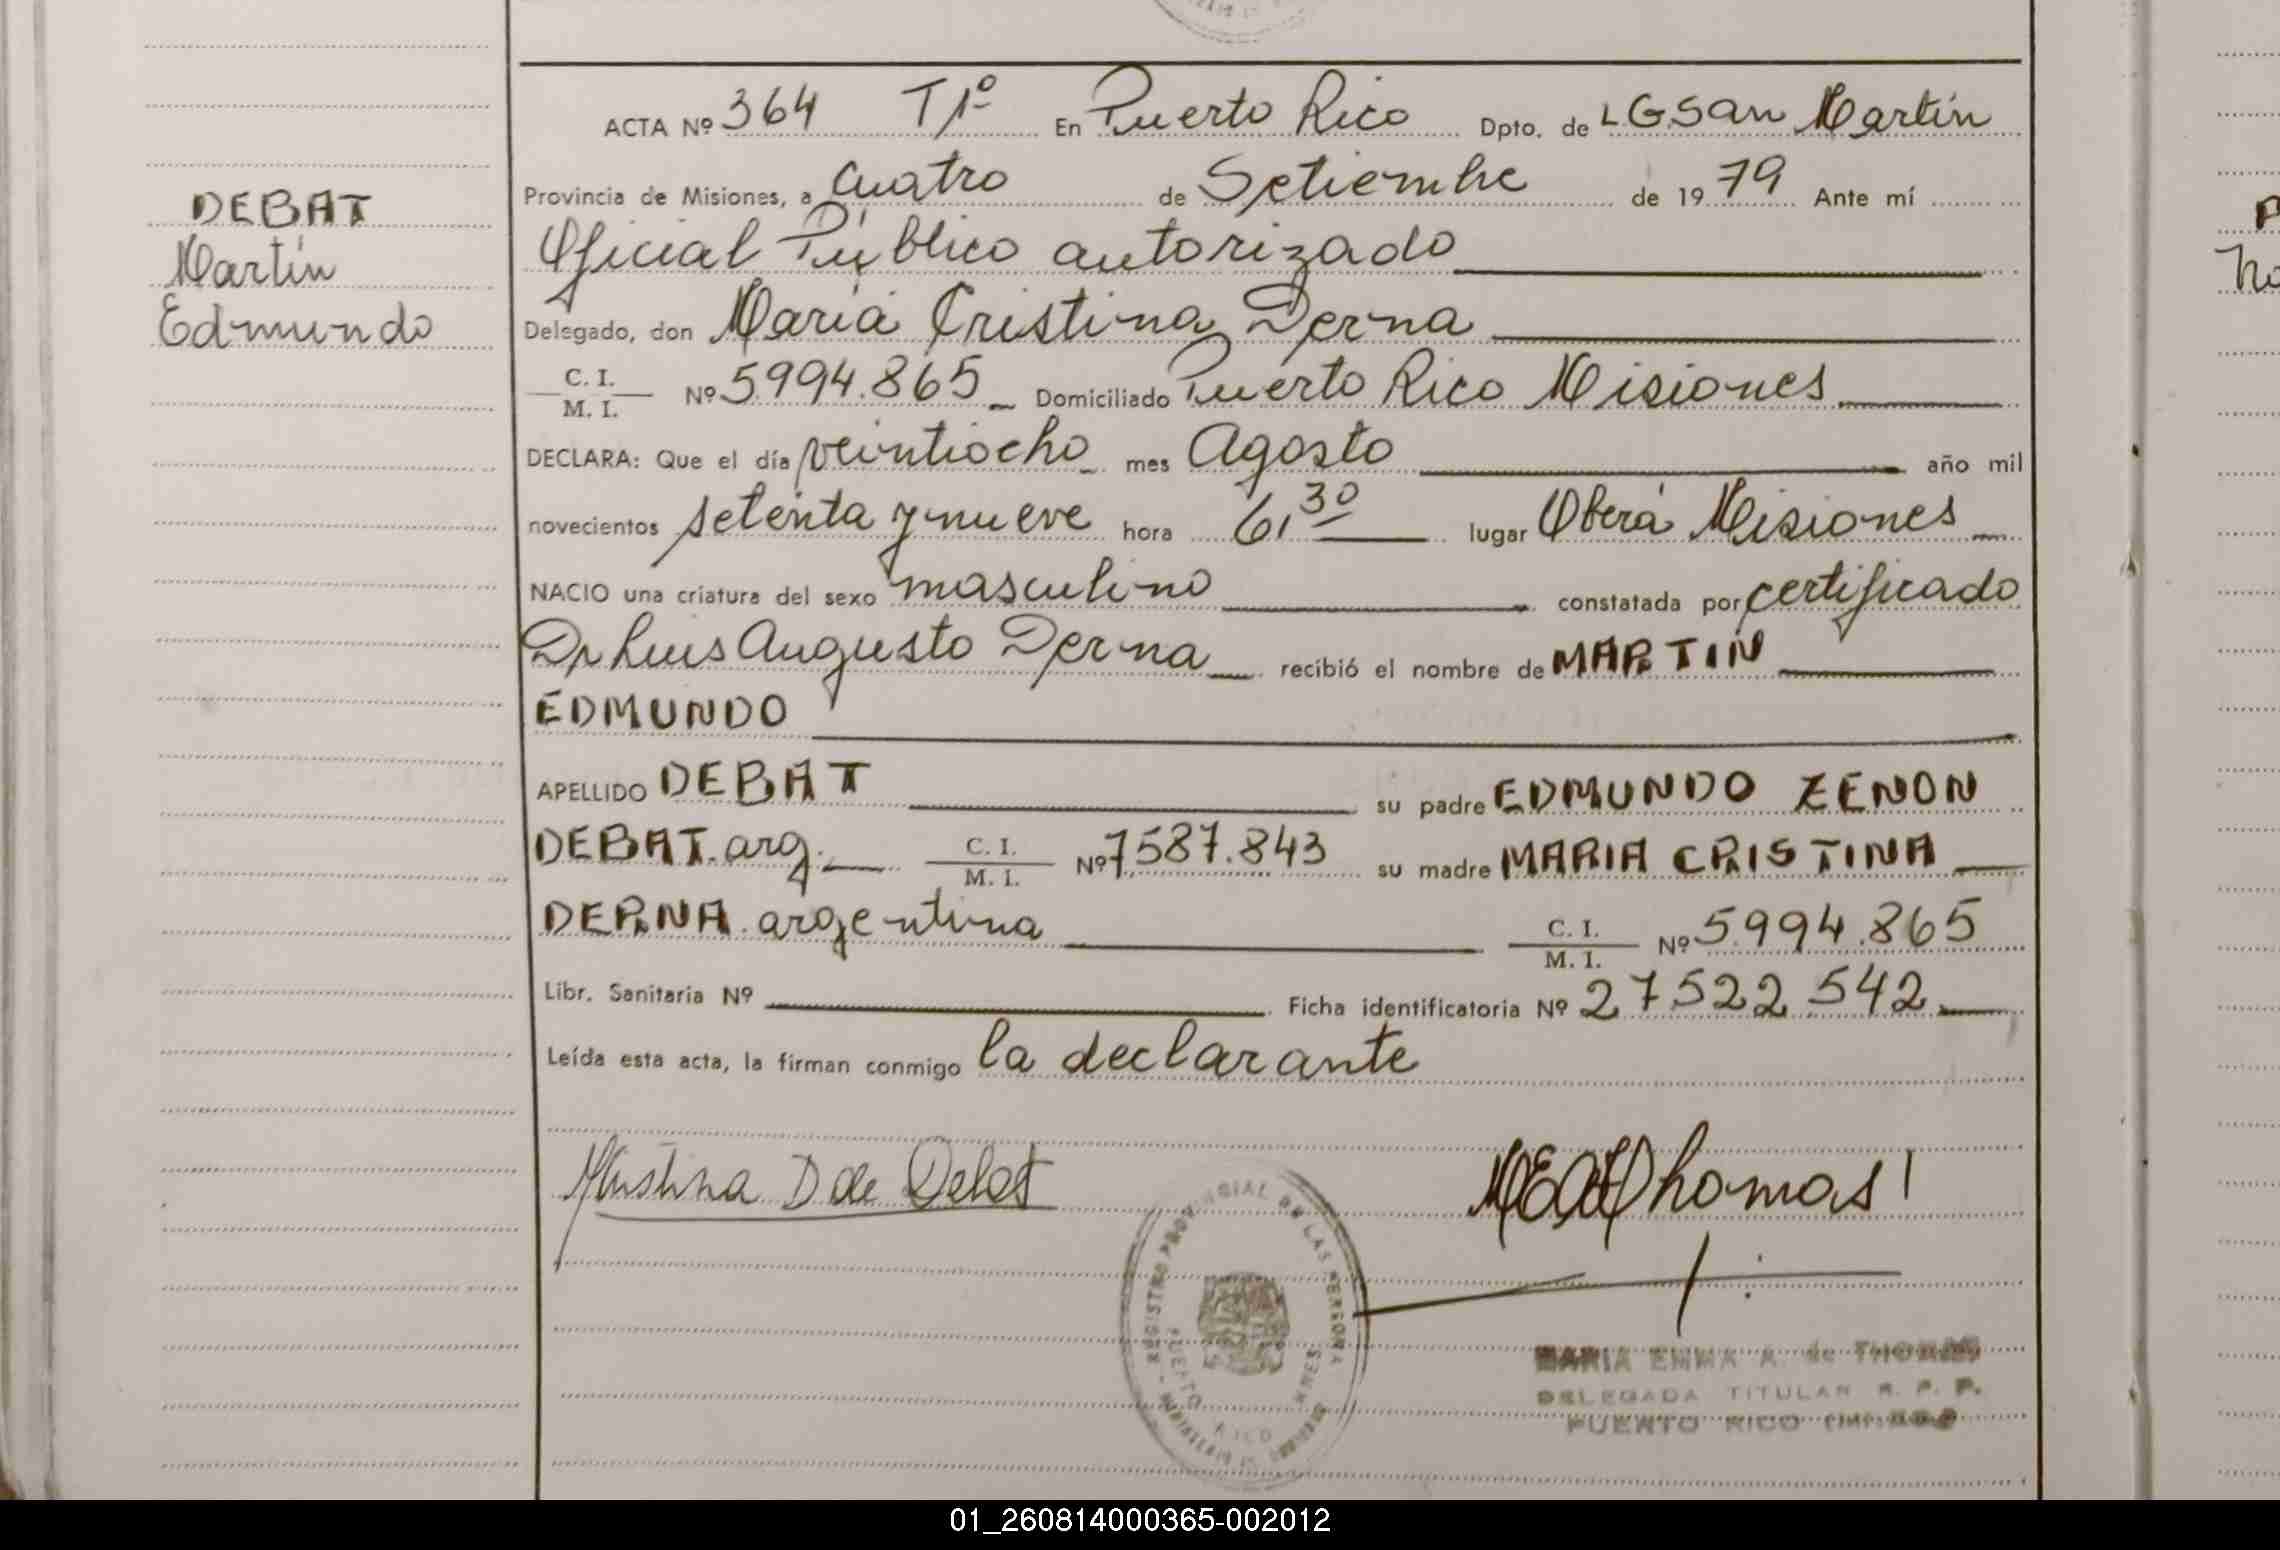 DEBAT
Martín
Edmundo
ACTA Nº 364 T1º En Puerto Rico Dpto. de LG San Martín
Provincia de Misiones, a Cuatro de Setiembre de 1979 Ante mí
Oficial Público autorizado
Delegado, don María Cristina Derna
C. I. / M. I. Nº 5.994.865 Domiciliado Puerto Rico Misiones
DECLARA: Que el día veintiocho mes Agosto año mil
novecientos setenta y nueve hora 6,30 lugar Oberá Misiones
NACIO una criatura del sexo masculino constatada por certificado
Dr Luis Augusto Derna recibió el nombre de MARTIN
EDMUNDO
APELLIDO DEBAT su padre EDMUNDO ZENON
DEBAT. arg. C. I. / M. I. Nº 7.587.843 su madre MARIA CRISTINA
DERNA. argentina C. I. / M. I. Nº 5.994.865
Libr. Sanitaria Nº Ficha identificatoria Nº 27.522.542
Leída esta acta, la firman conmigo la declarante
Cristina D de Debat
Thomas
REGISTRO PROVINCIAL DE LAS PERSONAS
PUERTO RICO
MARIA EMMA A. de THOMAS
DELEGADA TITULAR R. P. P.
PUERTO RICO
01_260814000365-002012